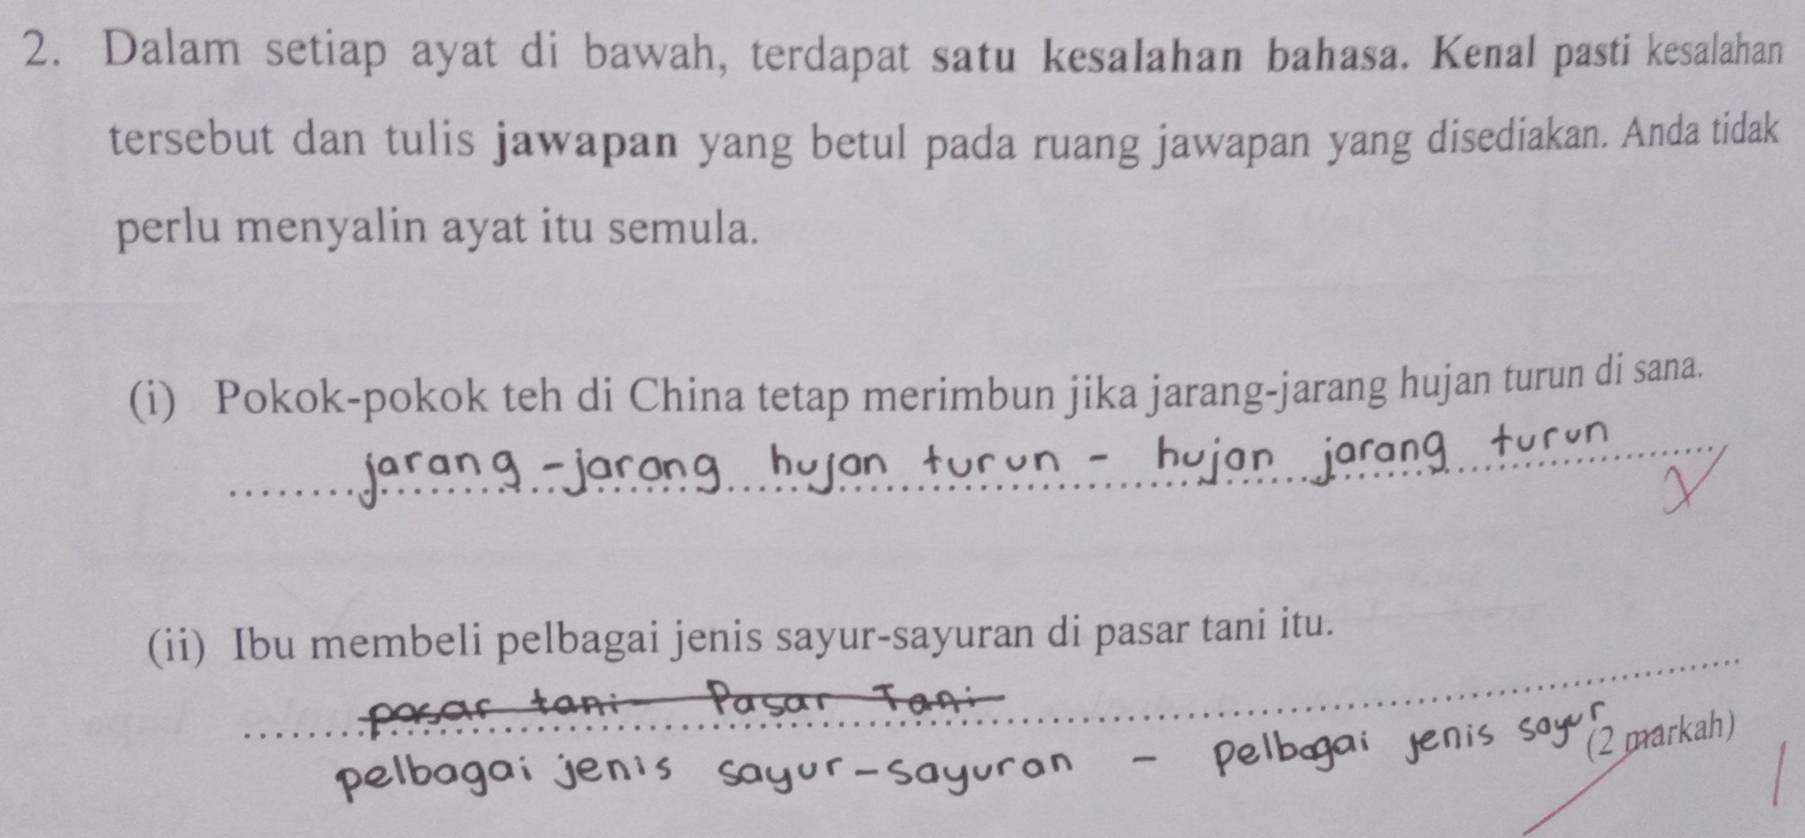 2. Dalam setiap ayat di bawah, terdapat satu kesalahan bahasa. Kenal pasti kesalahan
tersebut dan tulis jawapan yang betul pada ruang jawapan yang disediakan. Anda tidak
perlu menyalin ayat itu semula.
(i) Pokok-pokok teh di China tetap merimbun jika jarang-jarang hujan turun di sana.
jarang-jarang hujan turun - hujan jarang turun
(ii) Ibu membeli pelbagai jenis sayur-sayuran di pasar tani itu.
pasar tani - Pasar Tani
pelbagai jenis sayur-sayuran - pelbagai jenis sayur
(2 markah)
1